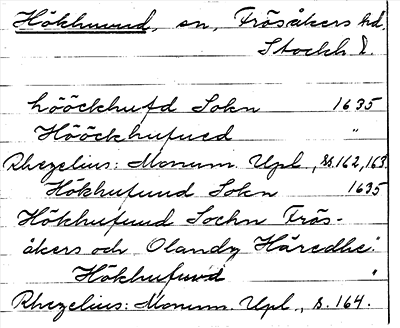 Hökhuvud, sn, Frösåkers hd,
Stockh l.
hööckhufd Sokn 1635
Hööckhufued "
Rhezelius: Monum. Upl., s. 162, 163
Hökhufuud Sokn 1635
Hökhufuud Sochn Frös-
åkers och Olandz Häredhe
Hökhufuvd "
Rhezelius: Monum. Upl., s. 164.